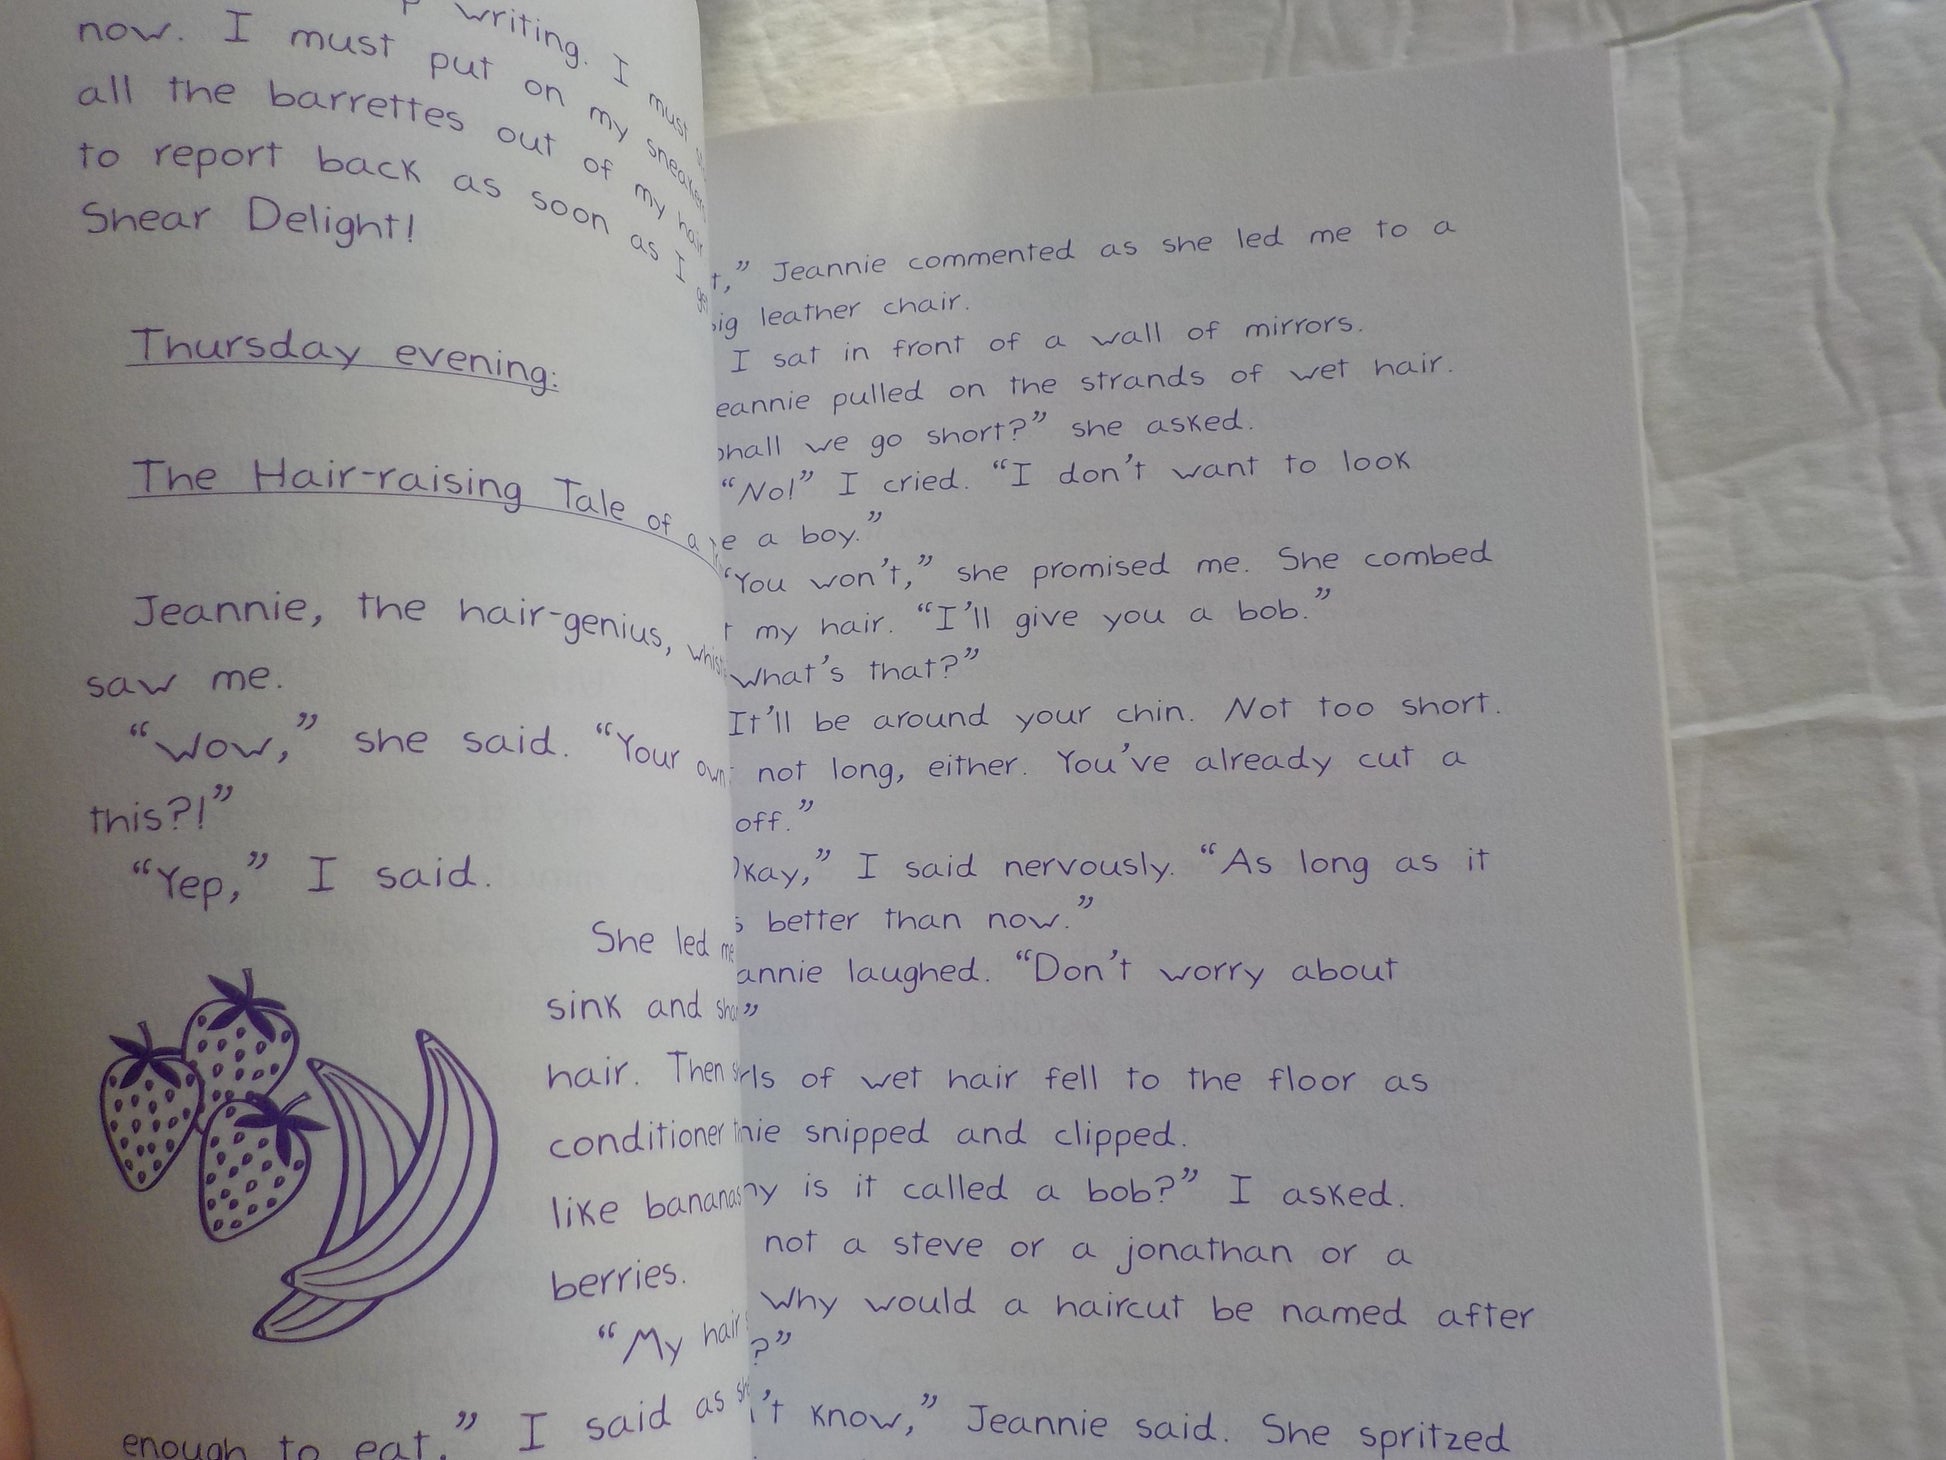 writing. I must
now. I must put on my sneakers
all the barrettes out of my hair
to report back as soon as I
Shear Delight!
Thursday evening:
The Hair-raising Tale of a
Jeannie, the hair-genius,
saw me.
“Wow,” she said. “Your own
this?!”
“Yep,” I said.
She led me
sink and
hair. Then
conditioner
like bananas
berries.
“My hair
enough to eat,” I said as
t,” Jeannie commented as she led me to a
big leather chair.
I sat in front of a wall of mirrors.
eannie pulled on the strands of wet hair.
hall we go short?” she asked.
“No!” I cried. “I don’t want to look
e a boy.”
“You won’t,” she promised me. She combed
t my hair. “I’ll give you a bob.”
What’s that?”
It’ll be around your chin. Not too short.
not long, either. You’ve already cut a
off.”
Okay,” I said nervously. “As long as it
s better than now.”
annie laughed. “Don’t worry about
”
rls of wet hair fell to the floor as
nie snipped and clipped.
hy is it called a bob?” I asked.
not a steve or a jonathan or a
Why would a haircut be named after
?”
’t know,” Jeannie said. She spritzed